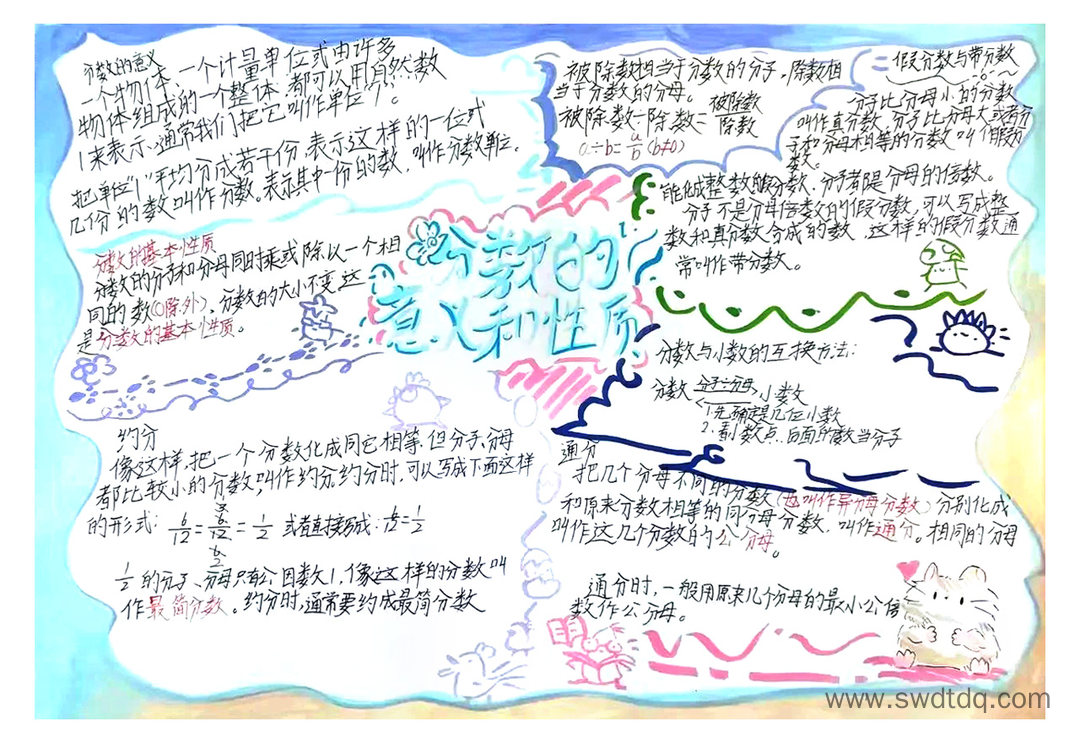 分数的意义
一个物体、一个计量单位或由许多
物体组成的一个整体,都可以用自然数
1来表示,通常我们把它叫作单位“1”。
把单位“1”平均分成若干份,表示这样的一位或
几份的数叫作分数。表示其中一份的数,叫作分数单位。
分数的基本性质
分数的分子和分母同时乘或除以一个相
同的数(0除外),分数的大小不变,这
是分数的基本性质。
约分
像这样,把一个分数化成同它相等,但分子、分母
都比较小的分数,叫作约分,约分时,可以写成下面这样
的形式:6/12=6/12=1/2 或者直接写成:6/12=1/2
1/2的分子、分母只有公因数1,像这样的分数叫
作最简分数。约分时,通常要约成最简分数
分数的
意义和性质
被除数相当于分数的分子,除数相
当于分数的分母。
被除数÷除数=被除数/除数
a÷b=a/b(b≠0)
假分数与带分数
分子比分母小的分数
叫作真分数,分子比分母大或者分
子和分母相等的分数叫作假分
数。
能化成整数的假分数,分子都是分母的倍数。
分子不是分母倍数的假分数,可以写成整
数和真分数合成的数,这样的假分数通
常叫作带分数。
分数与小数的互换方法:
分数 分子÷分母 小数
1.先确定是几位小数
2.看小数点后面的数当分子
通分
把几个分母不同的分数(也叫作异分母分数)分别化成
和原来分数相等的同分母分数,叫作通分。相同的分母
叫作这几个分数的公分母。
通分时,一般用原来几个分母的最小公倍
数作公分母。
www.swdtdq.com